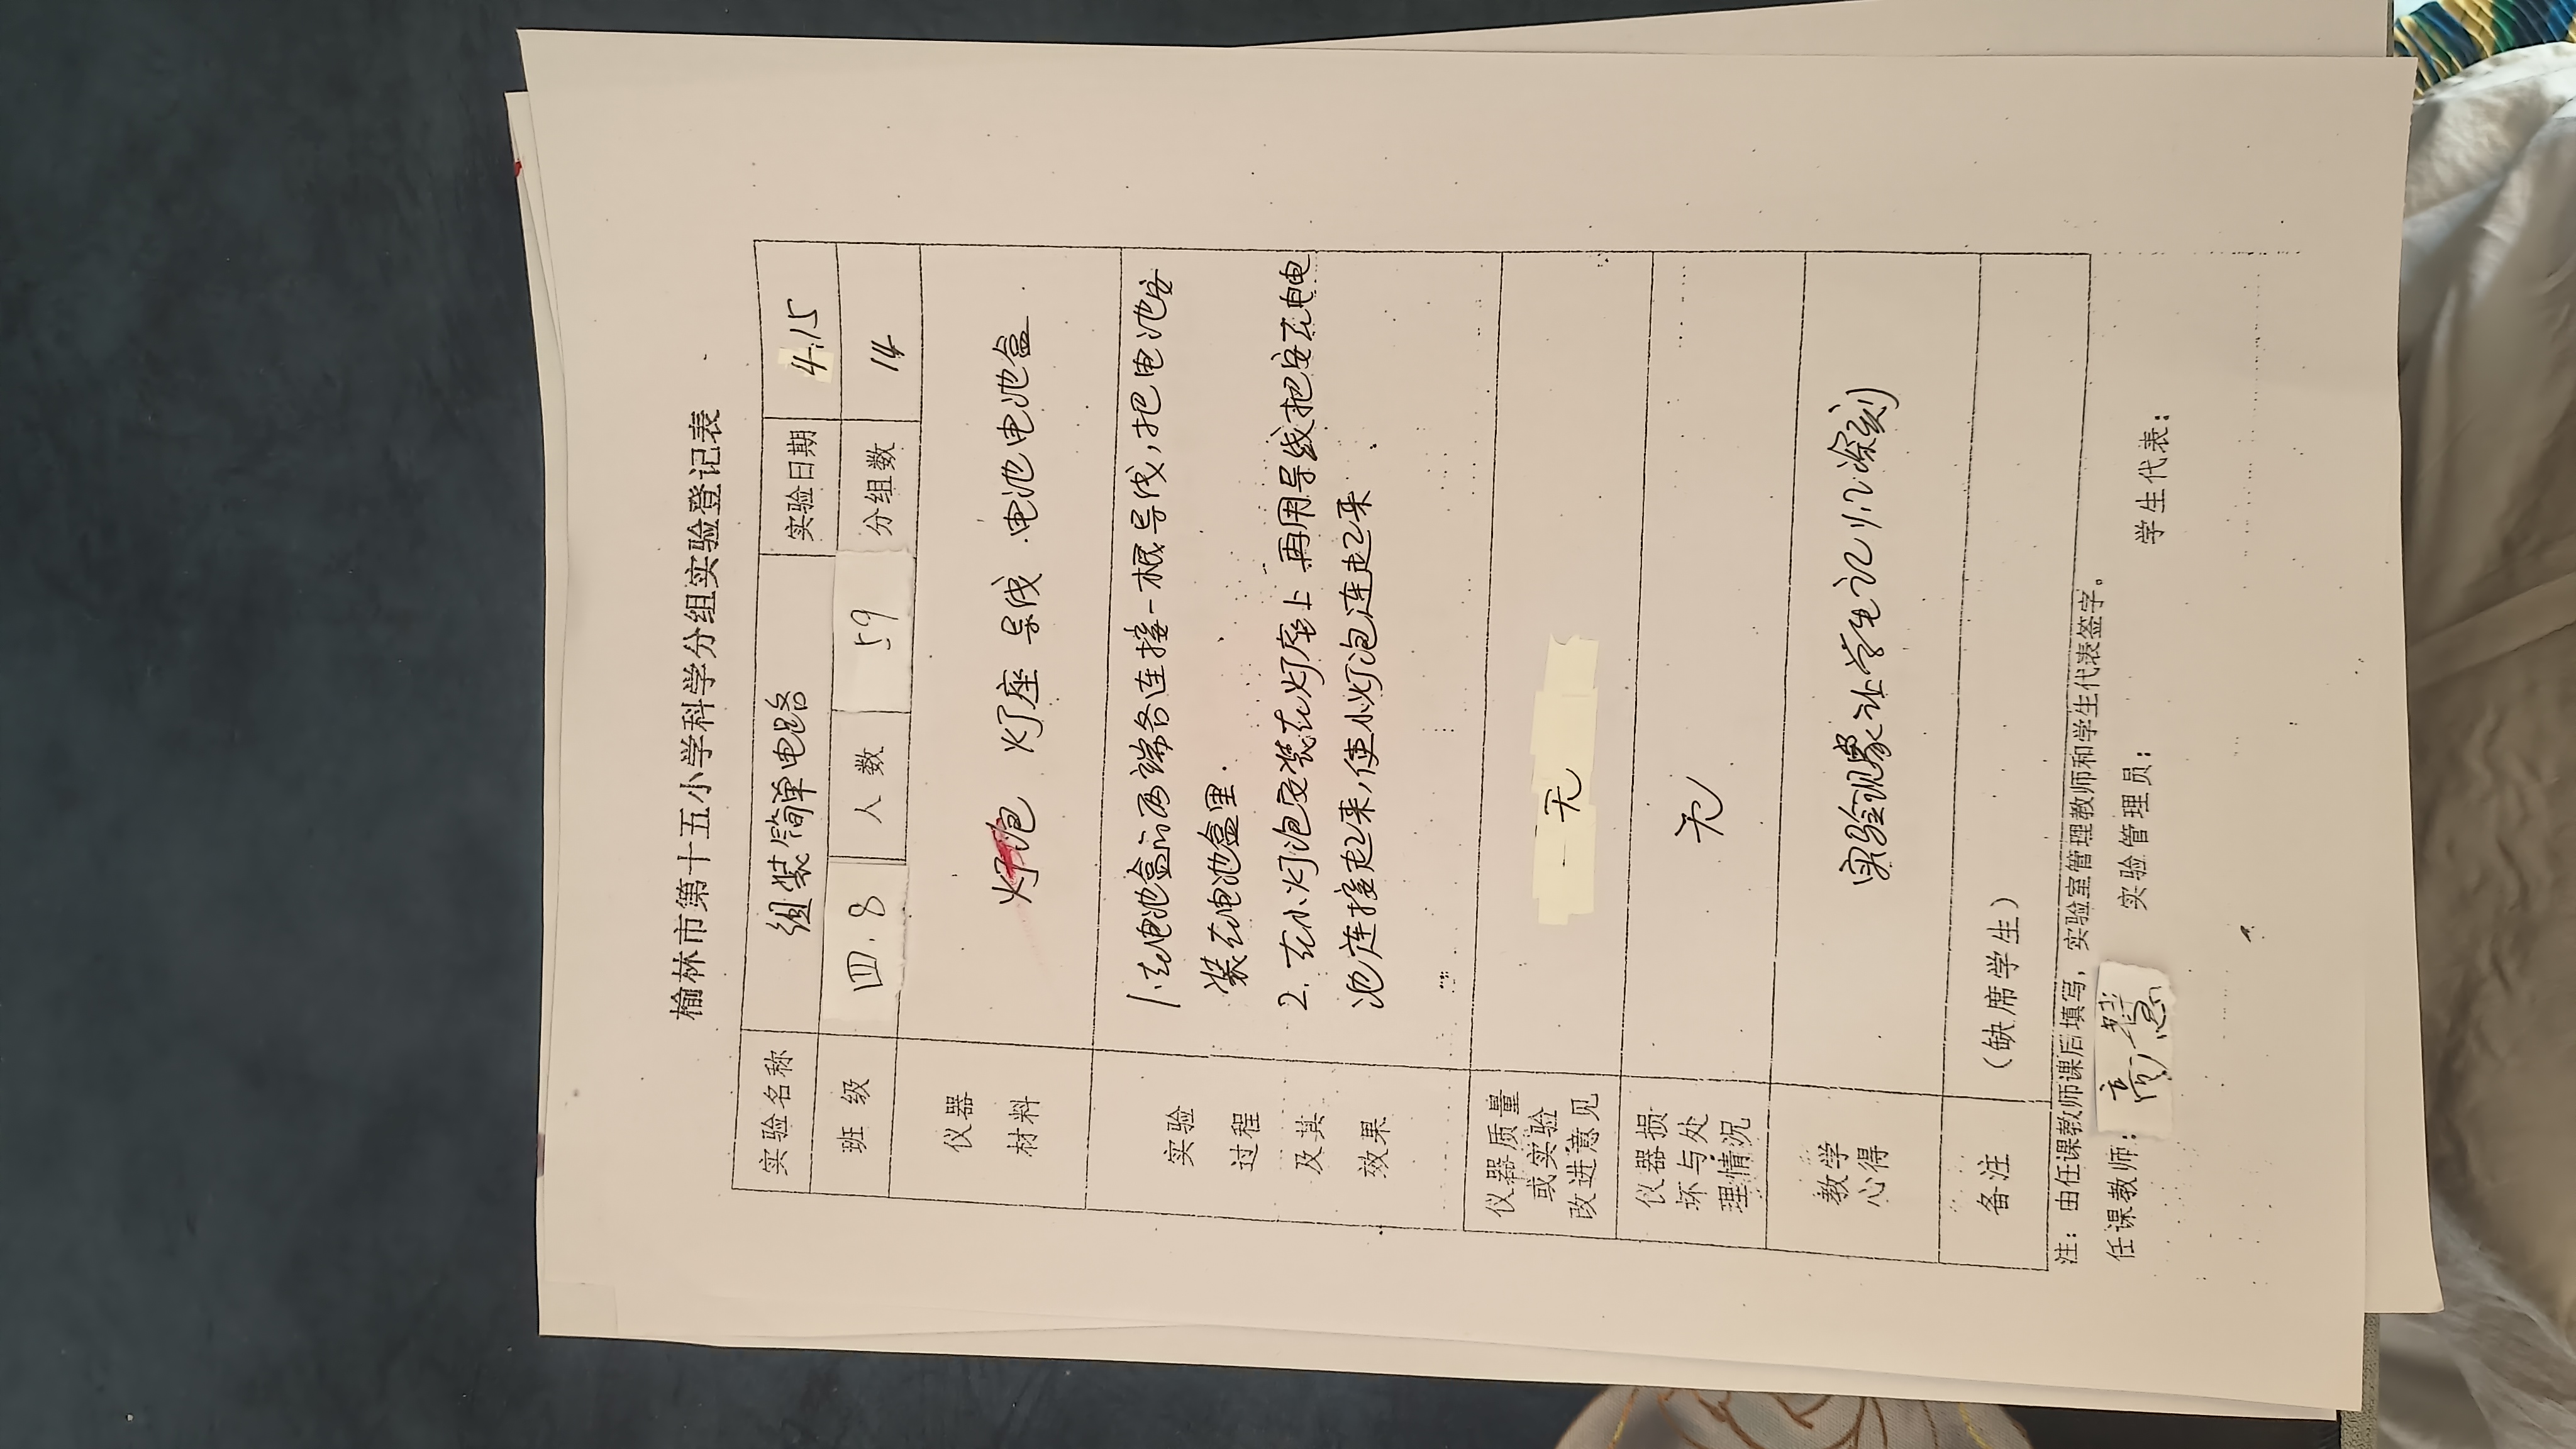 榆林市第十五小学科学分组实验登记表
实验名称 组装简单电路 实验日期 4.15
班级 四.8 人数 59 分组数 14
仪器
材料
灯泡 灯座 导线 电池 电池盒
实验
过程
及其
效果
1.在电池盒的两端各连接一根导线,把电池安
装在电池盒里.
2.在小灯泡安装在灯座上 再用导线把安在电
池连接起来,使小灯泡连起来
仪器质量
或实验
改进意见
无
仪器损
坏与处
理情况
无
教学
心得
实验现象让学生记忆深刻
备注 (缺席学生)
注:由任课教师课后填写,实验室管理教师和学生代表签字。
任课教师:高慧 实验管理员: 学生代表: